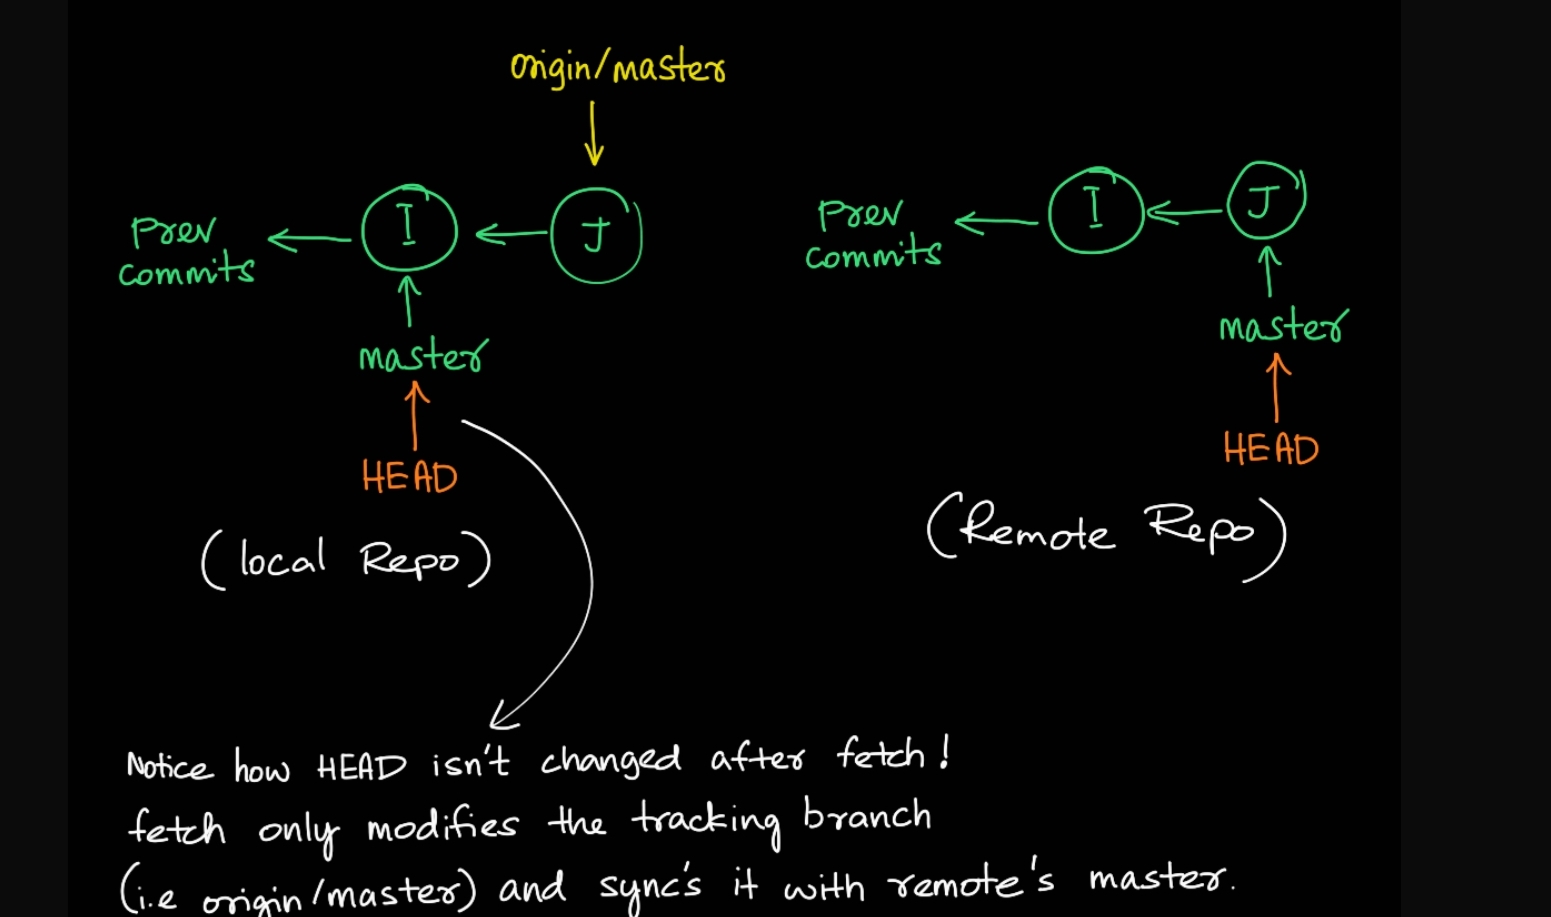 origin/master
Prev
commits
I
J
master
HEAD
(local Repo)
Prev
commits
I
J
master
HEAD
(Remote Repo)
Notice how HEAD isn't changed after fetch!
fetch only modifies the tracking branch
(i.e origin/master) and sync's it with remote's master.